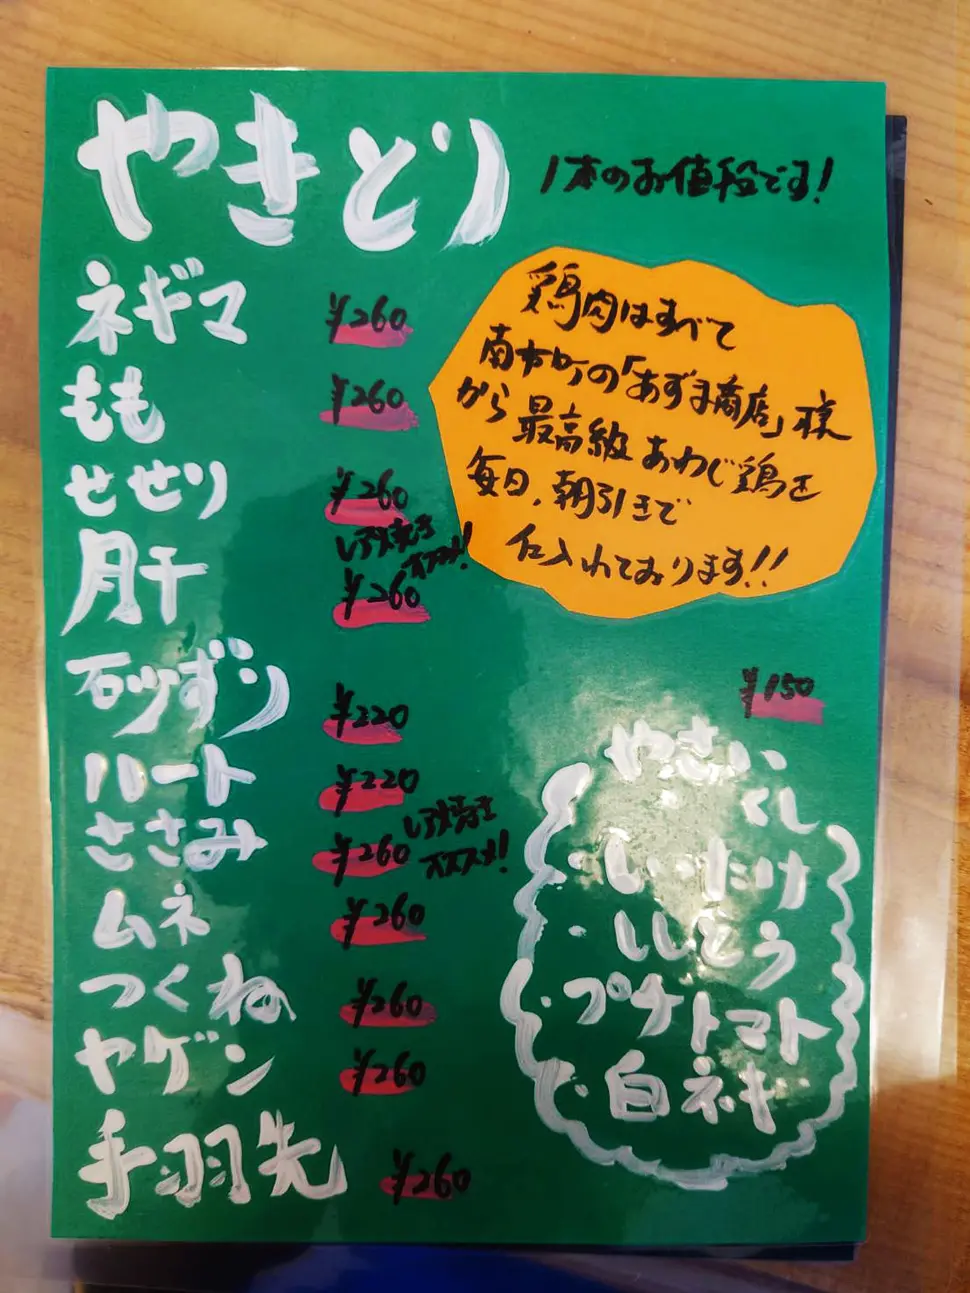 やきとり 1本のお値段です!
鶏肉はすべて
南本町の「あずま商店」様
から最高級あわじ鶏を
毎日、朝引きで
仕入れております!!
ネギマ ¥260
もも ¥260
せせり ¥260
レア焼き
ススメ!
肝 ¥260
石ヅずシ ¥220
ハート ¥220
レア焼き
ススメ!
ささみ ¥260
ムネ ¥260
つくね ¥260
ヤゲン ¥260
手羽先 ¥260
¥150
やさい
くし
・しいたけ
・ししとう
・プチトマト
・白ネギ